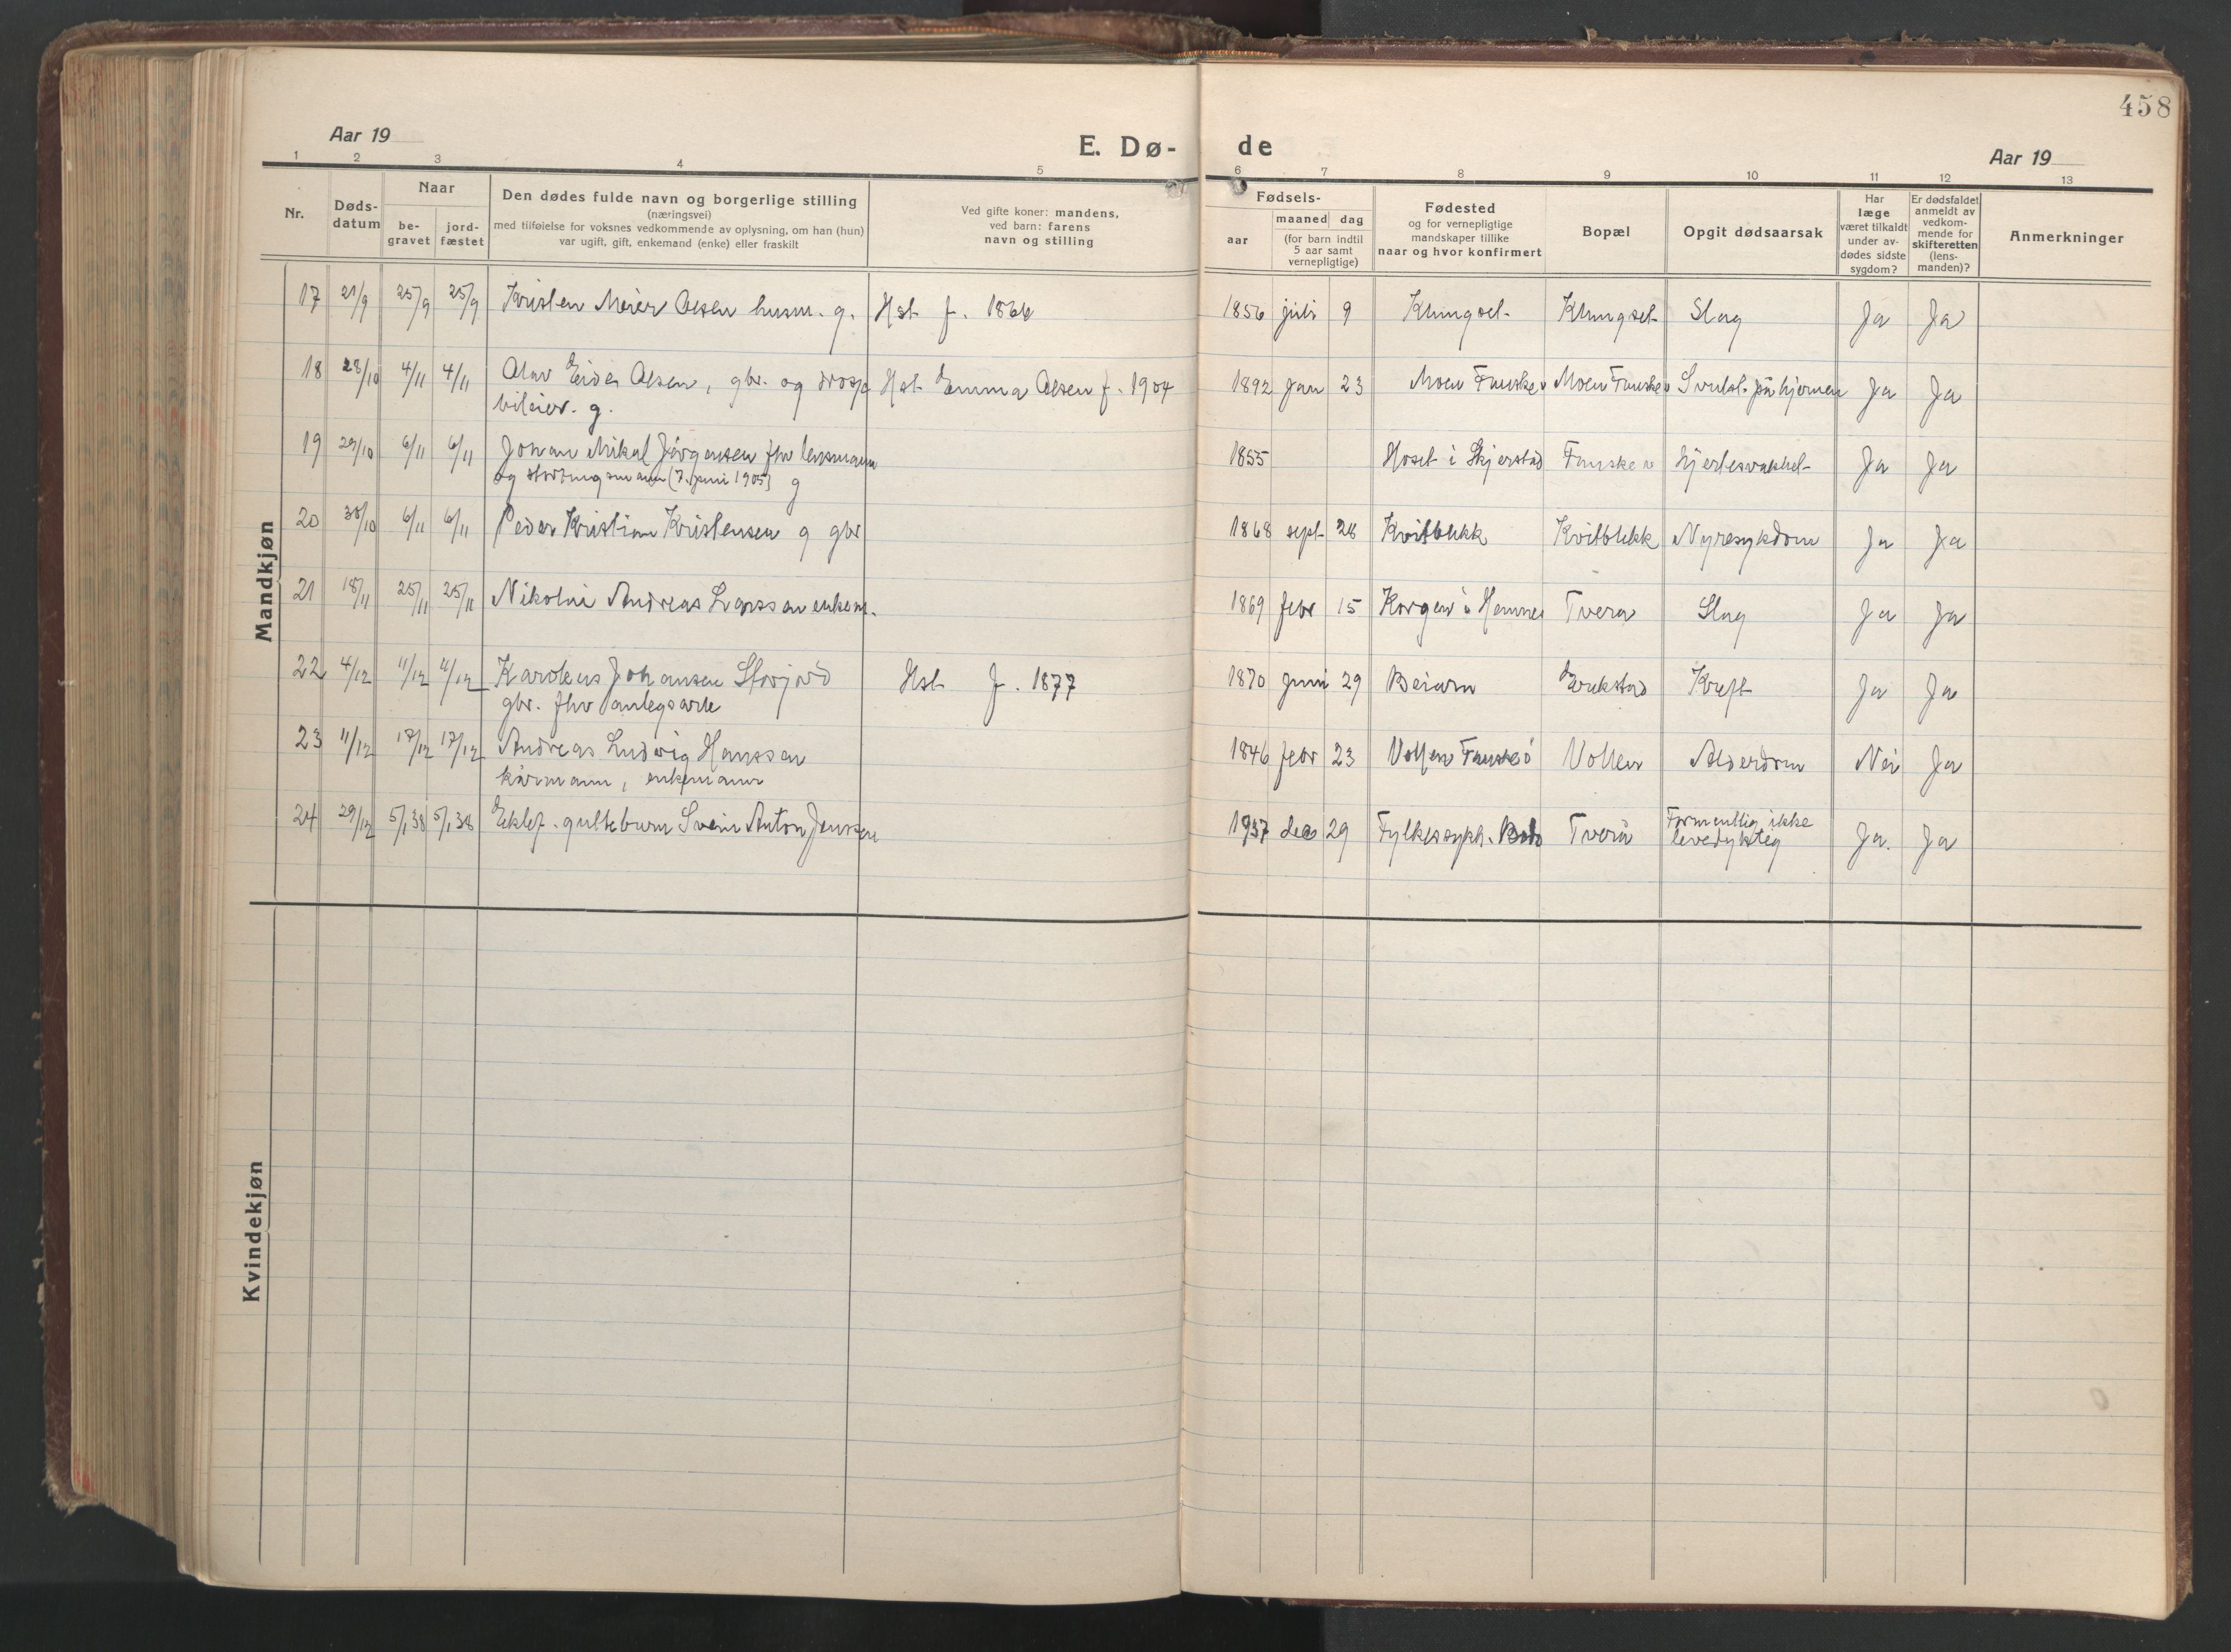 458
Aar 19
E. Dø-
de
Aar 19
1 2 3 4 5 6 7 8 9 10 11 12 13
Nr.
Døds-
datum
Naar
be-
gravet
jord-
fæstet
Den dødes fulde navn og borgerlige stilling
(næringsvei)
med tilføielse for voksnes vedkommende av oplysning, om han (hun)
var ugift, gift, enkemand (enke) eller fraskilt
Ved gifte koner: mandens,
ved barn: farens
navn og stilling
Fødsels-
aar
maaned dag
(for barn indtil
5 aar samt
vernepligtige)
Fødested
og for vernepligtige
mandskaper tillike
naar og hvor konfirmert
Bopæl
Opgit dødsaarsak
Har
læge
været tilkaldt
under av-
dødes sidste
sygdom?
Er dødsfaldet
anmeldt av
vedkom-
mende for
skifteretten
(lens-
manden)?
Anmerkninger
Mandkjøn
17 21/9 25/9 25/9 Kristen Meier Olsen husm. g. Hst f. 1866 1856 juli 9 Klungset Klungset Slag Ja Ja
18 28/10 4/11 4/11 Olav Eider Olsen, gbr. og drosje Hst Emma Olsen f. 1904 1892 jan 23 Moen Fauske Moen Fauske Svulst på hjernen Ja Ja
bileier. g.
19 29/10 6/11 6/11 Johan Mikal Jörgensen fhv lensmann 1855 Hoset i Skjerstad Fauske hjertesvakhet Ja Ja
og stortingsmann (7. juni 1905) g
20 30/10 6/11 6/11 Peder Kristian Kristensen g gbr 1868 sept 28 Kvitblikk Kvitblikk Nyresykdom Ja Ja
21 18/11 25/11 25/11 Nikolai Andreas Larssen enkem. 1869 febr 15 Korgen i Hemnes Tverå Slag Ja Ja
22 4/12 11/12 11/12 Karolius Johansen Storjord Hst f. 1877 1870 juni 29 Beiarn Erikstad Kreft Ja Ja
gbr. fhv anlegsarb
23 11/12 17/12 17/12 Andreas Ludvig Hanssen 1846 febr 23 Vollen Fauske Vollen Alderdom Nei Ja
kårmann, enkemann
24 29/12 5/1 38 5/1 38 Ektef. guttebarn Svein Anton Jenssen 1937 des 29 Fylkessykh. Bodø Tverå Formentlig ikke
levedyktig Ja. Ja
Kvindekjøn